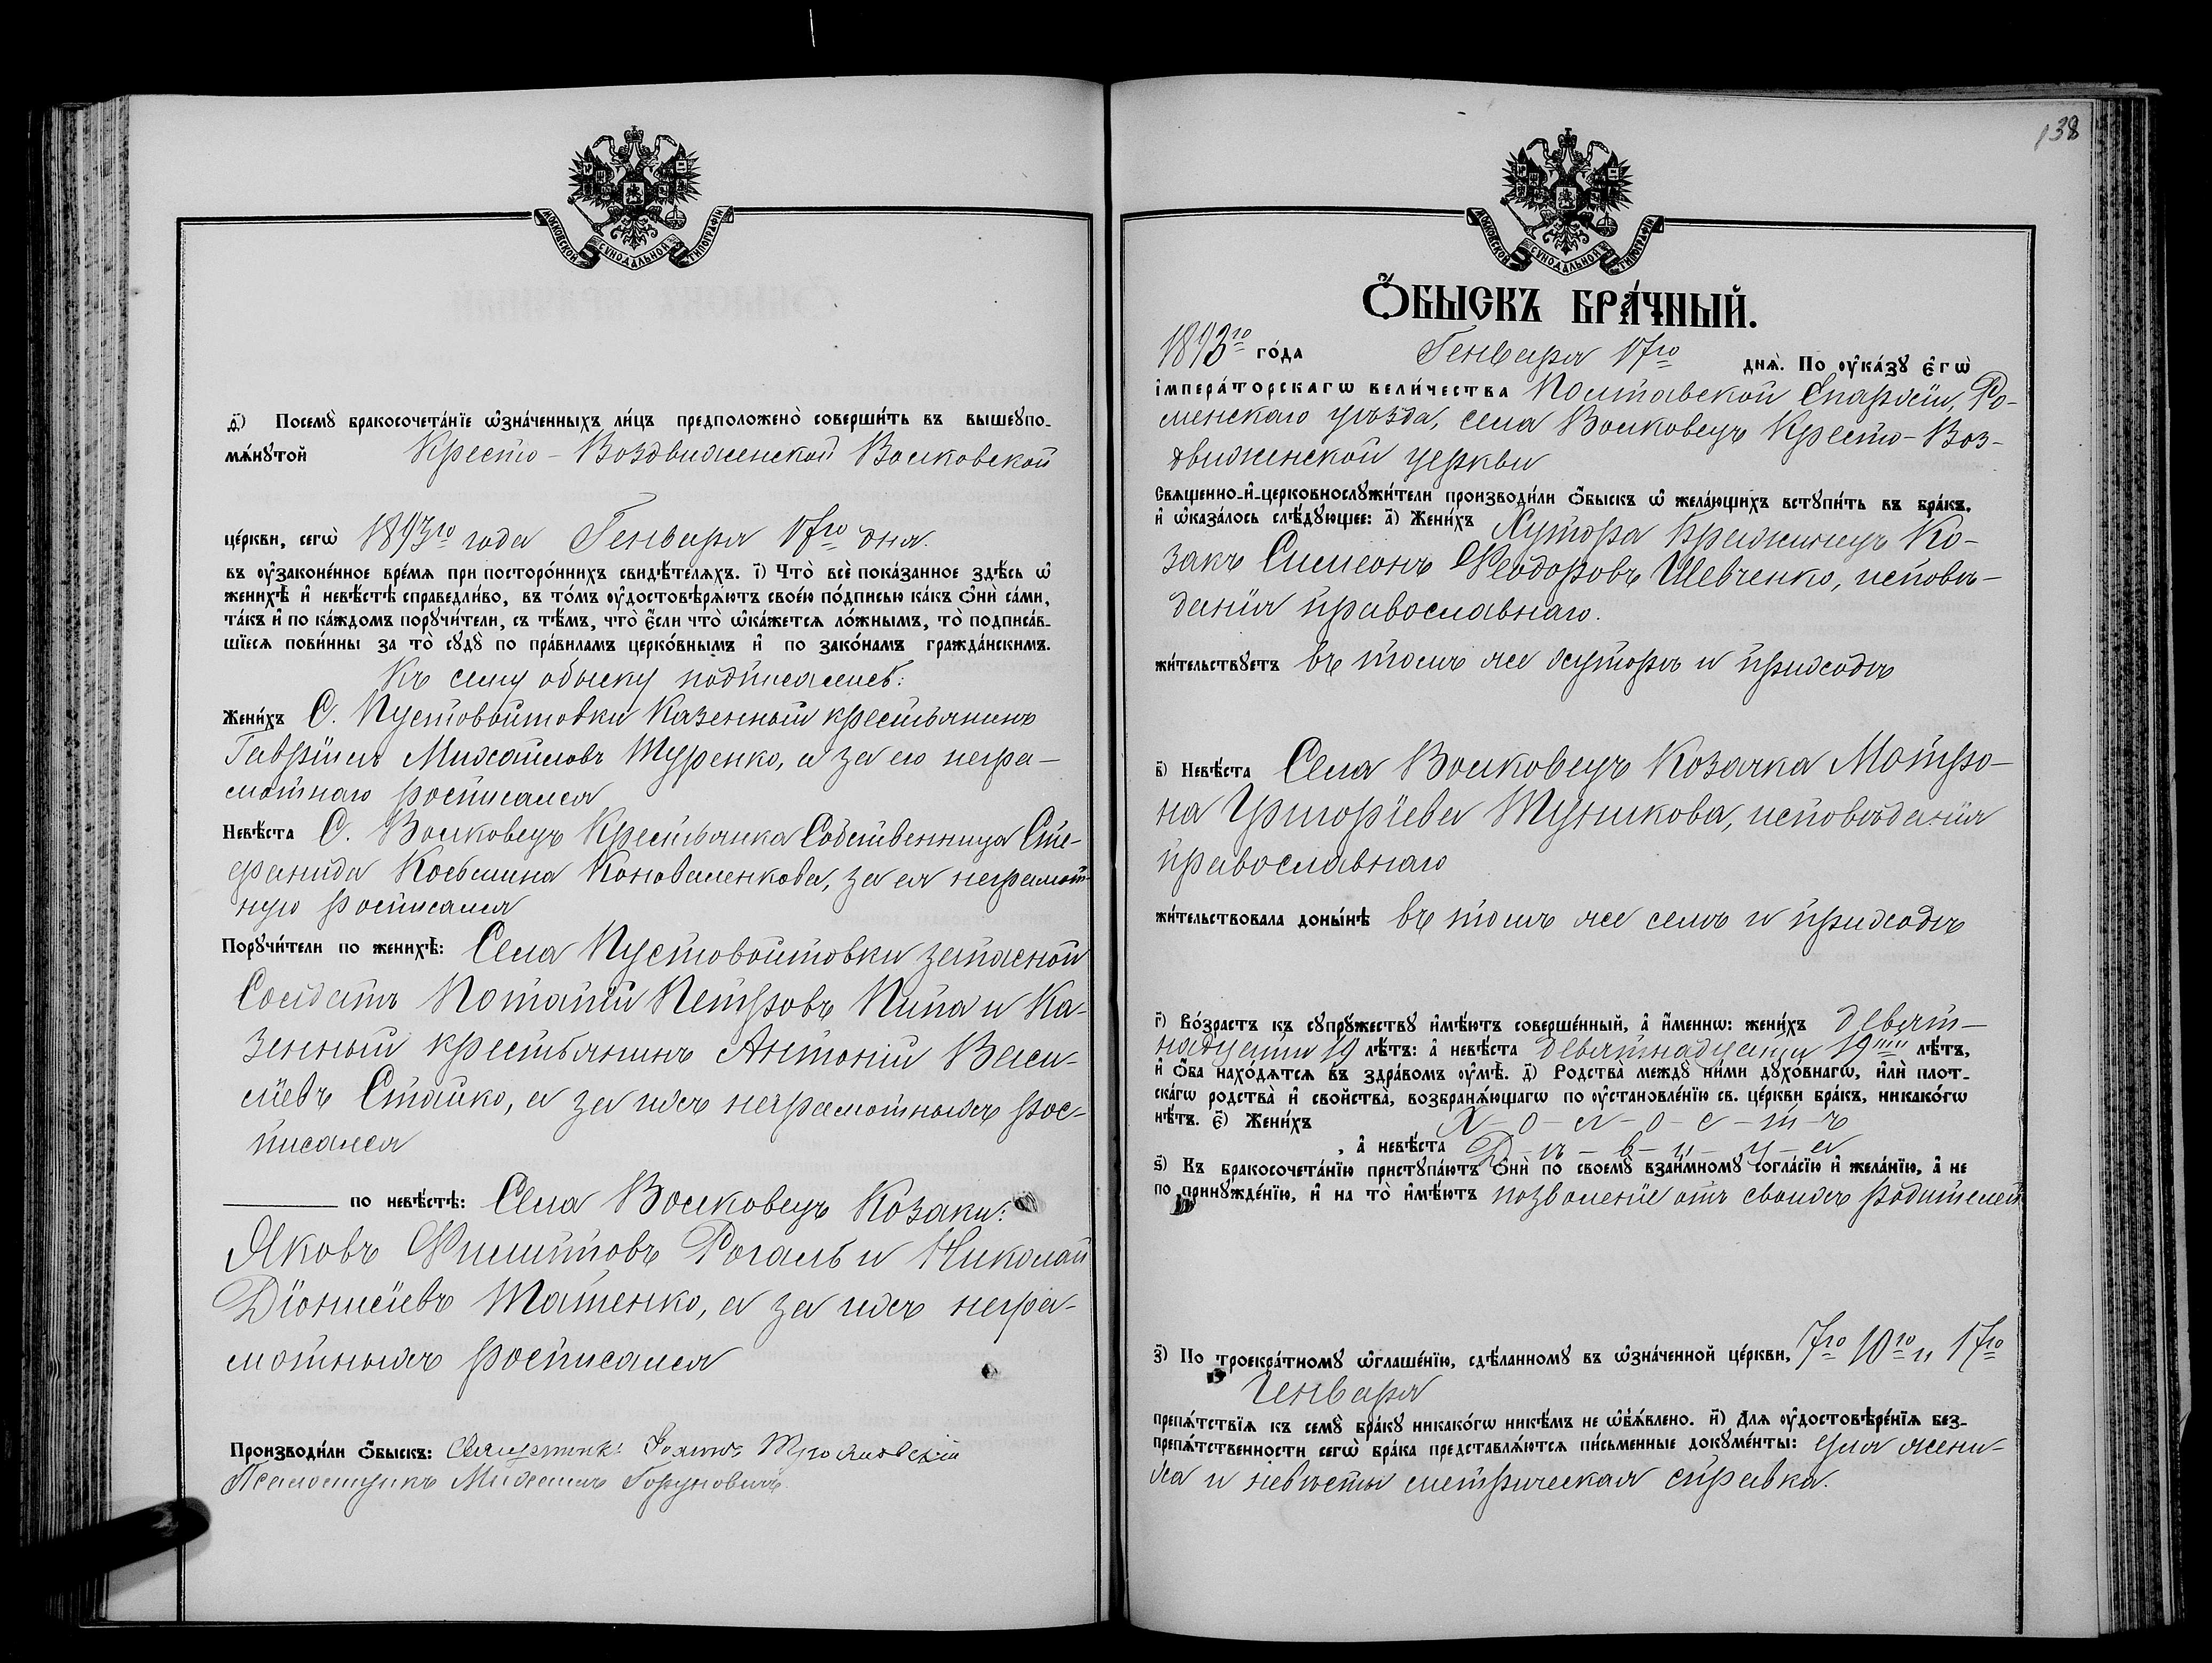 МОСКОВСКОЙ СѴНОДАЛЬНОЙ ТИПОГРАФІИ
д҃) Посемꙋ̀ бракосочета́нїе ѡ҆зна́ченныхъ ли́цъ предположено̀ соверши́ть въ вышеꙋпо-
мѧ́нꙋтой Кресто-Воздвиженской Волковской
це́ркви, сегѡ̀ 1893го года Генваря 17го дня.
въ ᲂу҆законе́нное вре́мѧ при посторо́ннихъ свидѣ́телѧхъ. і҃) Что̀ всѐ пока́занное здѣ́сь ѡ҆
женихѣ̀ и҆ невѣ́стѣ справедли́во, въ то́мъ ᲂу҆достовѣрѧ́ютъ свое́ю по́дписью ка́къ ѻ҆нѝ са́ми,
та́къ и҆ по ка́ждомъ порꙋчи́тели, съ тѣ́мъ, что̀ є҆́сли что̀ ѡ҆ка́жетсѧ ло́жнымъ, то̀ подписа́в-
шїесѧ пови́нны за то̀ сꙋдꙋ̀ по пра́вилам церко́внымъ и҆ по зако́намъ гражда́нскимъ.
Къ сему обыску подписались:
Жени́хъ С. Пустовойтовки Казенный крестьянинъ
Гавріилъ Михаиловъ Туренко, а за его негра-
мотнаго росписался
Невѣ́ста С. Волковецъ Крестьянка Собственница Сте-
фанида Косьмина Коноваленкова, за ея неграмот-
ную росписался
Порꙋчи́тели по женихѣ̀: Села Пустовойтовки запасной
Солдатъ Потапій Петровъ Пипа и Ка-
зенный крестьянинъ Антоній Васи-
ліевъ Стайко, а за ихъ неграмотныхъ рос-
писался
по невѣ́стѣ: Села Волковецъ Козаки:
Яковъ Филипповъ Рогаль и Николай
Діонисіевъ Ташенко, а за ихъ негра-
мотныхъ росписался
Производи́ли ѻ҆́быскъ: Священникъ Трояновскій
Псаломщикъ Михаилъ Горуновичъ
138
МОСКОВСКОЙ СѴНОДАЛЬНОЙ ТИПОГРАФІИ
Ѻ҆́БЫСКЪ БРА́ЧНЫЙ.
1893го го́да Генваря 17го днѧ̀. По ᲂу҆ка́зꙋ є҆гѡ̀
і҆мпера́торскагѡ вели́чества Полтавской Епархіи, Ро-
менскаго уѣзда, села Волковецъ Кресто-Воз-
движенской церкви
Свѧщенно-и҆-церковнослꙋжи́тели производи́ли ѻ҆́быскъ ѡ҆ жела́ющихъ вступи́ть въ бра́къ,
и҆ ѡ҆каза́лось слѣ́дꙋющее: а҃) Жени́хъ Хутора Кражинецъ Ко-
закъ Симеонъ Ѳеодоровъ Шевченко, исповѣ-
данія православнаго.
жи́тельствꙋетъ въ томъ же хуторѣ и приходѣ
в҃) Невѣ́ста Села Волковецъ Козачка Матро-
на Григоріева Тупикова, исповѣданія
православнаго
жи́тельствовала доны́нѣ въ томъ же селѣ и приходѣ
г҃) Во́зрастъ къ сꙋпрꙋ́жествꙋ и҆мѣ́ютъ соверше́нный, а҆ и҆́меннѡ: жени́хъ девят-
надцати 19 лѣ́тъ: а҆ невѣ́ста девятнадцати 19ти лѣ́тъ,
и҆ ѻ҆́ба нахо́дѧтсѧ въ здра́вомъ ᲂу҆мѣ̀. д҃) Родства̀ междꙋ̀ ни́ми дꙋхо́внагѡ, и҆лѝ плот-
ска́гѡ родства̀ и҆ сво́йства, возбранѧ́ющагѡ по ᲂу҆становле́нїю св. це́ркви бра́къ, никако́гѡ
нѣ́тъ. є҃) Жени́хъ Х-о-л-о-с-т-ъ
, а҆ невѣ́ста Д-ѣ-в-и-ц-а
ѕ҃) Къ бракосочета́нїю пристꙋпа́ютъ ѻ҆нѝ по своемꙋ̀ взаи́мномꙋ согла́сїю и҆ жела́нїю, а҆ не
по принꙋжде́нїю, и҆ на то̀ и҆мѣ́ютъ позволеніе отъ своихъ родителей
з҃) По троекра́тномꙋ ѡ҆глаше́нїю, сдѣ́ланномꙋ въ ѡ҆зна́ченной це́ркви, 7го 10го и 17го
Генваря
препѧ́тствїѧ къ семꙋ̀ бра́кꙋ никако́гѡ никѣ́мъ не ѡ҆б̾ѧ́влено. и҃) Длѧ ᲂу҆достовѣре́нїѧ без-
препѧ́тственности сегѡ̀ бра́ка представлѧ́ютсѧ пи́сьменные докꙋме́нты: для жени-
ха и невѣсты метрическая справка.